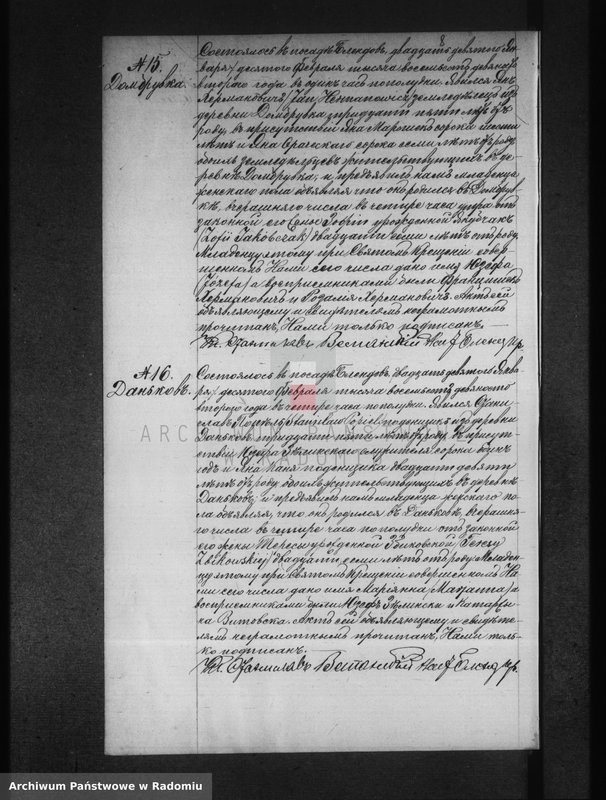 № 15.
Домбрувка.
Состоялось въ посадѣ Блендовъ, двадцать девятого Ян-
варя/ десятого Февраля тысяча восемьсотъ девяносто
второго года въ одинъ часъ пополудни. Явился Янъ
Хермановичъ /Jan Hermanowicz/ земледѣлецъ изъ
деревни Домбрувка тридцати пяти лѣтъ отъ
роду, въ присутствіи Яна сорока
лѣтъ и Яна сорока семи лѣтъ отъ роду
обоихъ земледѣльцевъ жительствующихъ въ де-
ревнѣ Домбрувка; и предъявилъ намъ младенца
женскаго пола объявляя что оно родился въ Домбрув-
кѣ, вчерашняго числа въ четыре часа утра отъ
законной его жены Зофіи урожденной Якубчакъ
/Zofii Jakóbczak/ двадцати семи лѣтъ отъ роду.
Младенцу этому при Святомъ Крещеніи совер-
шенномъ Нами сего числа дано имя Юзефа
/Józefa/ а воспріемниками были Францишекъ
Хермановичъ и Розалія Хермановичъ. Актъ сей
объявляющему и свидѣтелямъ неграмотнымъ
прочитанъ, Нами только подписанъ.
Кс. Станиславъ
№ 16.
Даньковъ.
Состоялось въ посадѣ Блендовъ, двадцать девятого Янва-
ря/ десятого Февраля тысяча восемьсотъ девяносто
второго года въ четыре часа пополудни. Явился Стани-
славъ /Stanisław/ поденщикъ изъ деревни
Даньковъ тридцати пяти лѣтъ отъ роду, въ присут-
ствіи Юзефа Зѣлинскаго служителя сорока одинъ
годъ и Яна Каня поденщика двадцати девяти
лѣтъ отъ роду обоихъ жительствующихъ въ деревнѣ
Даньковъ; и предъявилъ намъ младенца женскаго по-
ла объявляя, что оно родился въ Даньковѣ, вчерашня-
го числа въ четыре часа пополудни отъ законной
его жены Тересы урожденной Збиковской /Teresy
Zbikowskiej/ двадцати семи лѣтъ отъ роду. Младен-
цу этому при Святомъ Крещеніи совершенномъ На-
ми сего числа дано имя Маріянна /Maryanna/ а
воспріемниками были Юзефъ Зѣлински и Катаржы-
на Витовска. Актъ сей объявляющему и свидѣте-
лямъ неграмотнымъ прочитанъ, Нами толь-
ко подписанъ.
Кс. Станиславъ
Archiwum Państwowe w Radomiu